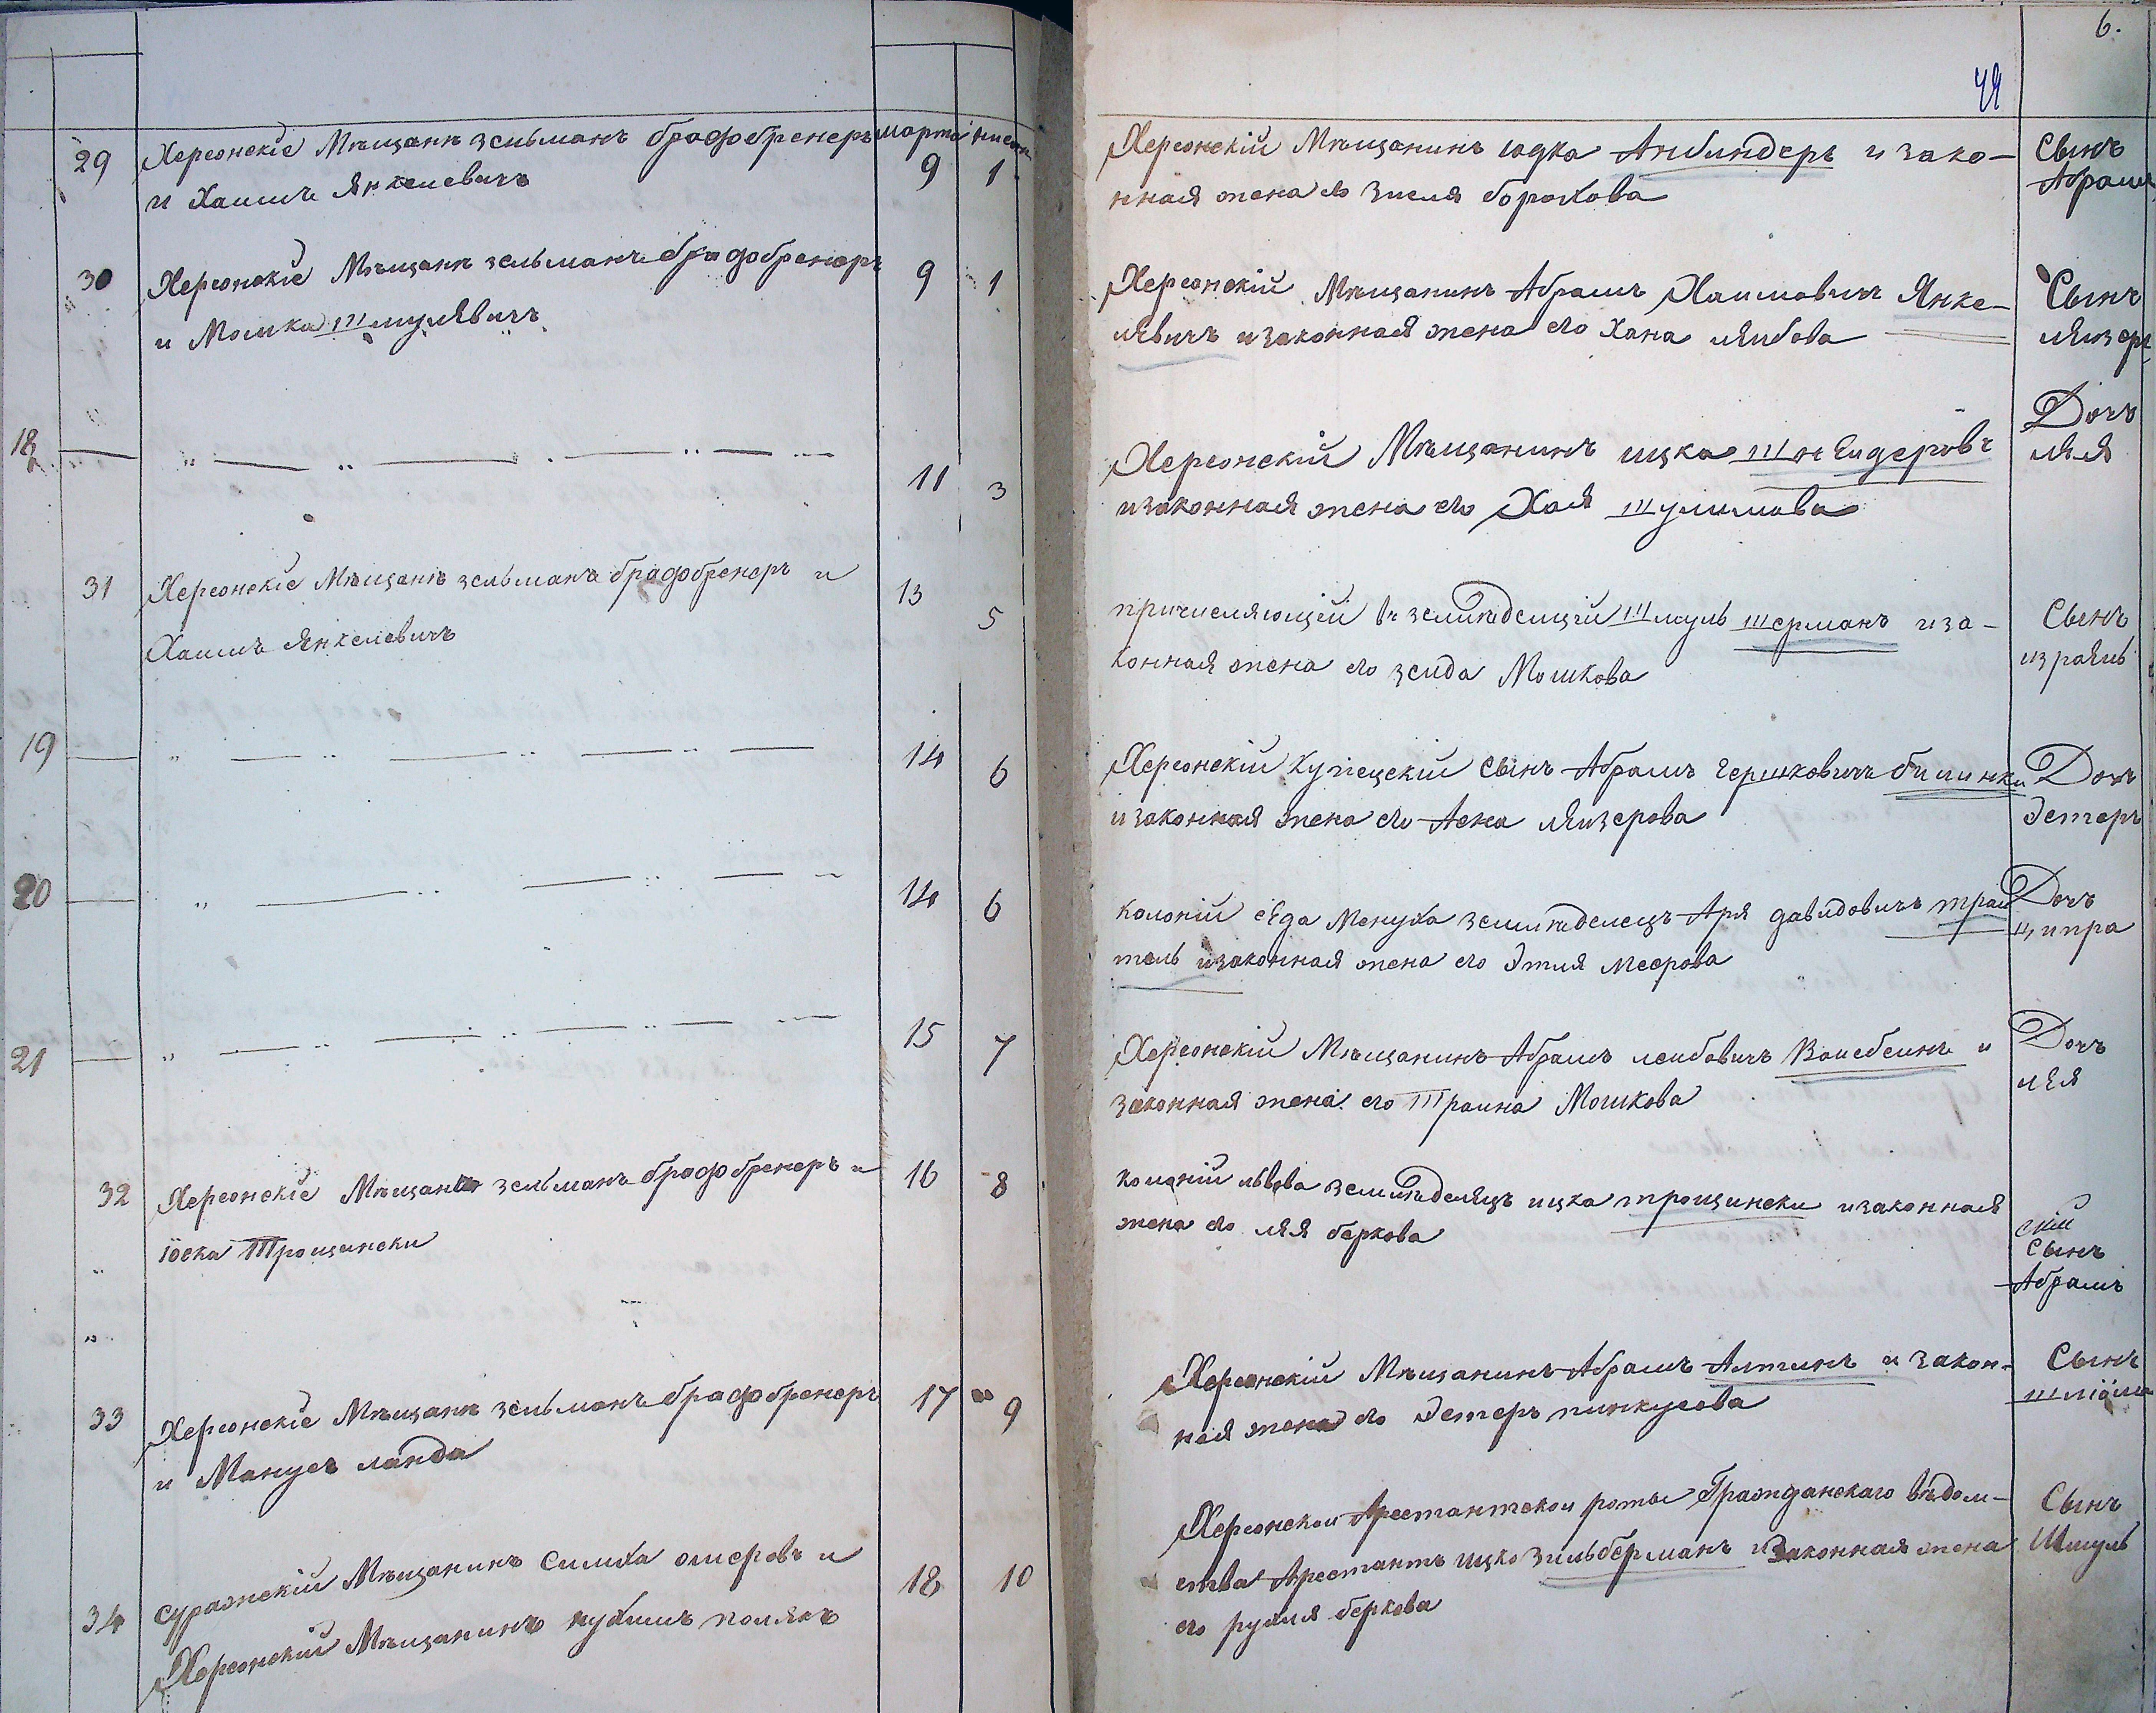 марта нисана
29 Херсонскіе Мѣщане зельманъ брафбренеръ 9 1
и Хаимъ Янкелевичъ
30 Херсонскіе Мѣщане зельманъ брафбренеръ 9 1
и Мошка Шмулявичъ
18 11 3
31 Херсонскіе Мѣщане зельманъ брафбренеръ и 13 5
Хаимъ Янкелевичъ
19 14 6
20 14 6
21 15 7
32 Херсонскіе Мѣщане зельманъ брафбренеръ и 16 8
Іоска Трощински
33 Херсонскіе Мѣщане зельманъ брафбренеръ 17 9
и Манусъ ланда
34 суражскій Мѣщанинъ симха омеровъ и 18 10
Херсонскій Мѣщанинъ нухимъ полякъ
6.
49
Херсонскій Мѣщанинъ юдка Анбиндеръ и зако- Сынъ
нная жена его Зисля борохова Абрамъ
Херсонскій Мѣщанинъ Абрамъ Хаимовичъ Янке- Сынъ
лявичъ и законная жена его Хана лейбова лейзеръ
Херсонскій Мѣщанинъ ицка Шнейдеровъ Дочъ
и законная жена его Хая Шулимова лея
причисляющій въ земледелцы Шмуль Шерманъ и за- Сынъ
конная жена его зелда Мошкова израяль
Херсонскій Купецскій сынъ Абрамъ Гершковичъ билинки Дочъ
и законная жена его Асна лейзерова Эстеръ
Колоніи седа Менуха земледелецъ Аря давидовичъ трах Дочъ
тель и законная жена его Этля меерова ципра
Херсонскій Мѣщанинъ Абрамъ лейбовичъ Вайсбейнъ и Дочъ
законная жена его Траина Мошкова лея
Колоніи львова земледелецъ ицка трощински и законная скій
жена его лея беркова Сынъ
Абрамъ
Херсонскій Мѣщанинъ Абрамъ Алтинъ и закон- Сынъ
ная жена его Эстеръ пинкусова шліома
Херсонской Арестантской роты Гражданскаго вѣдом- Сынъ
ства Арестантъ ицко зильберманъ и законная жена Шмуль
его рухля беркова